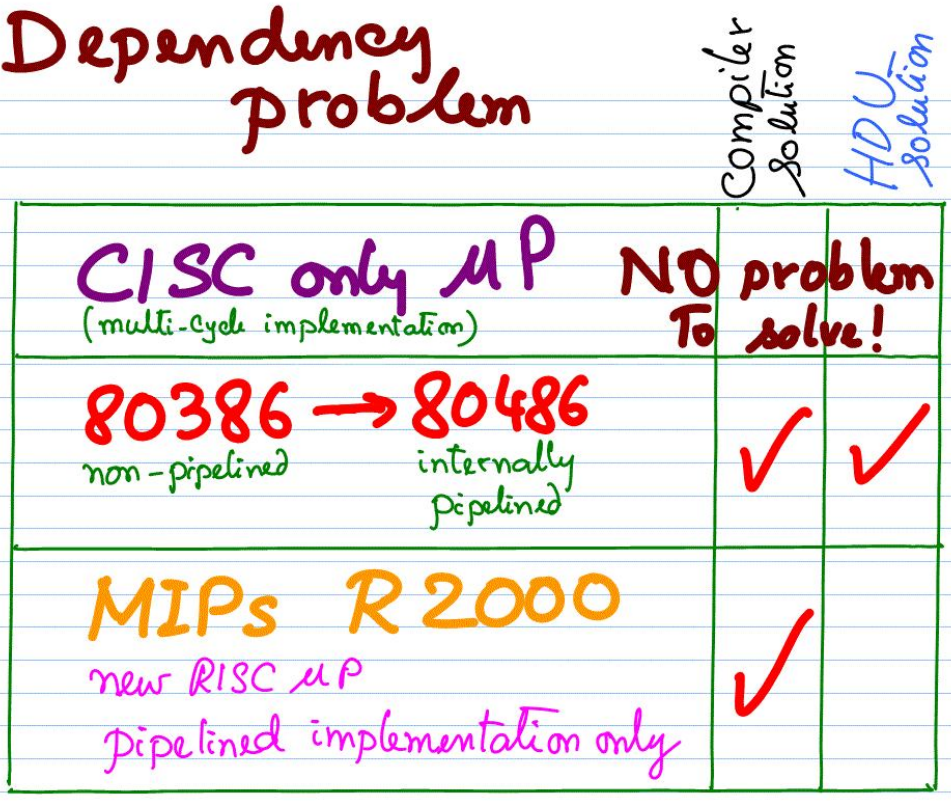 Dependency
problem
Compiler
solution
HDU
solution
CISC only μP NO problem
(multi-cycle implementation) To solve!
80386 → 80486 ✓ ✓
non-pipelined internally
pipelined
MIPs R2000
new RISC μP ✓
pipelined implementation only